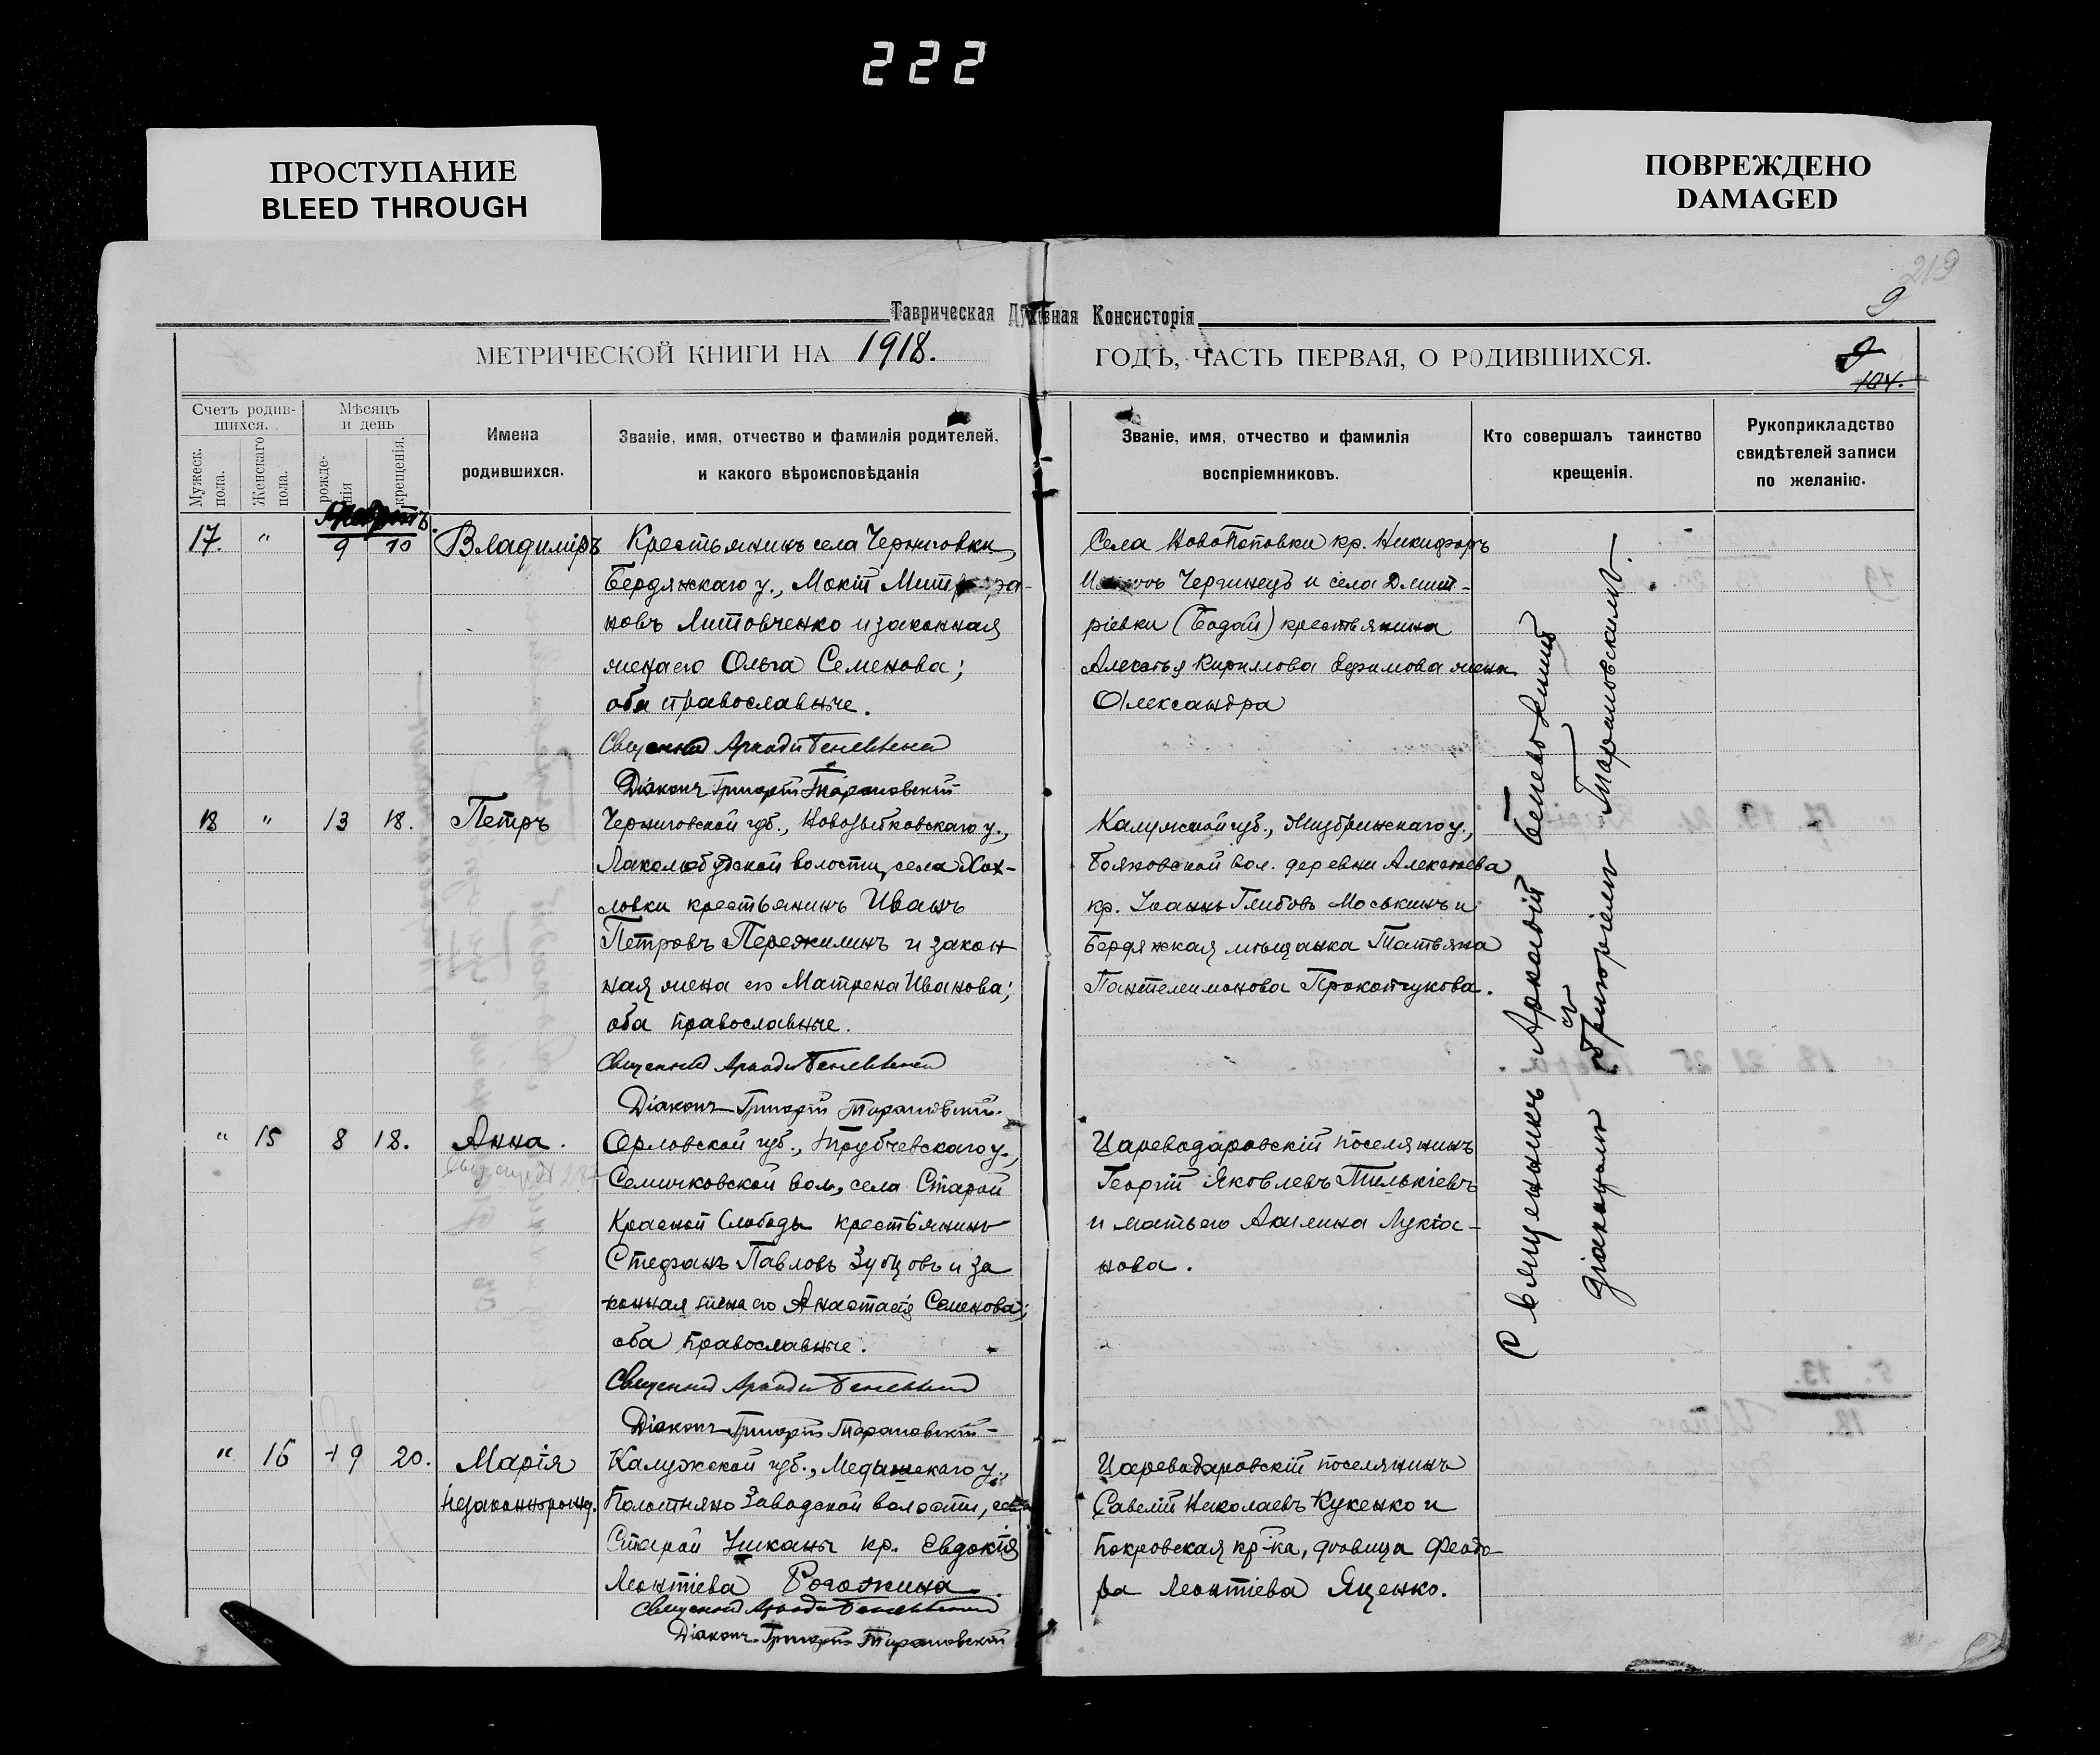 222
ПРОСТУПАНИЕ
BLEED THROUGH
ПОВРЕЖДЕНО
DAMAGED
219
9
Таврическая Духовная Консисторія
МЕТРИЧЕСКОЙ КНИГИ НА 1918.
ГОДЪ, ЧАСТЬ ПЕРВАЯ, О РОДИВШИХСЯ.
9
104.
Счетъ родив-
шихся.
Мужеск. пола.
Женскаго пола.
Мѣсяцъ
и день
рожде-
нія
крещенія.
Имена
родившихся.
Званіе, имя, отчество и фамилія родителей,
и какого вѣроисповѣданія
Званіе, имя, отчество и фамилія
воспріемниковъ.
Кто совершалъ таинство
крещенія.
Рукоприкладство
свидѣтелей записи
по желанію.
17. " 9 10 Владиміръ
Крестьянинъ села Черниговки,
Бердянскаго у., Мокій
новъ Литовченко и законная
жена его Ольга Семенова;
оба православные.
Священникъ Аркадій
Діаконъ Григорій Тарановскій
Села НовоПоповки кр. Никифоръ
и села Дмит-
ріевки (Бодай) крестьянина
Кирилова Ефимова жена
Александра
18 " 13 18. Петръ
Черниговской губ., Новозыбковскаго у.,
волости, села Хох-
ловки крестьянинъ Иванъ
Петровъ Пережилинъ и закон
ная жена его Матрена Иванова;
оба православные.
Священникъ Аркадій
Діаконъ Григорій Тарановскій.
Калужской губ., Жиздринскаго у.,
вол. деревни
кр. Іоаннъ Глибовъ Моськинъ и
Бердянская мѣщанка Татьяна
Пантелеимонова Прокопчукова.
" 15 8 18. Анна.
Орловской губ., Трубчевскаго у.,
Семичковской вол., села Старой
Красной Слободы крестьянинъ
Стефанъ Павловъ Зубцовъ и за
конная жена его Анастасія Семенова;
оба православные.
Священникъ Аркадій
Діаконъ Григорій Тарановскій
Цареводаровскій поселянинъ
Георгій Яковлевъ
и мать его Акилина Лукіа-
нова.
" 16 19 20. Марія
незаконнорожд.
Калужской губ., Медынскаго у.,
Полотняно Заводской волости, села
Старой кр. Евдокія
Леонтіева Рогожина.
Священникъ Аркадій
Діаконъ Григорій Тарановскій
Цареводаровскій поселянинъ
Савелій Николаевъ Кукенко и
Покровская кр-ка, вдовица Феодо-
ра Леонтіева Яценко.
Священникъ Аркадій
съ
діакономъ Григоріемъ Тарановскимъ.